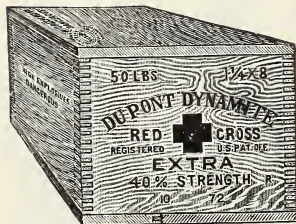 HIGH EXPLOSIVES
DANGEROUS
50 LBS 1¼ X 8
DU PONT DYNAMITE
RED CROSS
REGISTERED U.S. PAT. OFF.
EXTRA
40% STRENGTH R
10 72